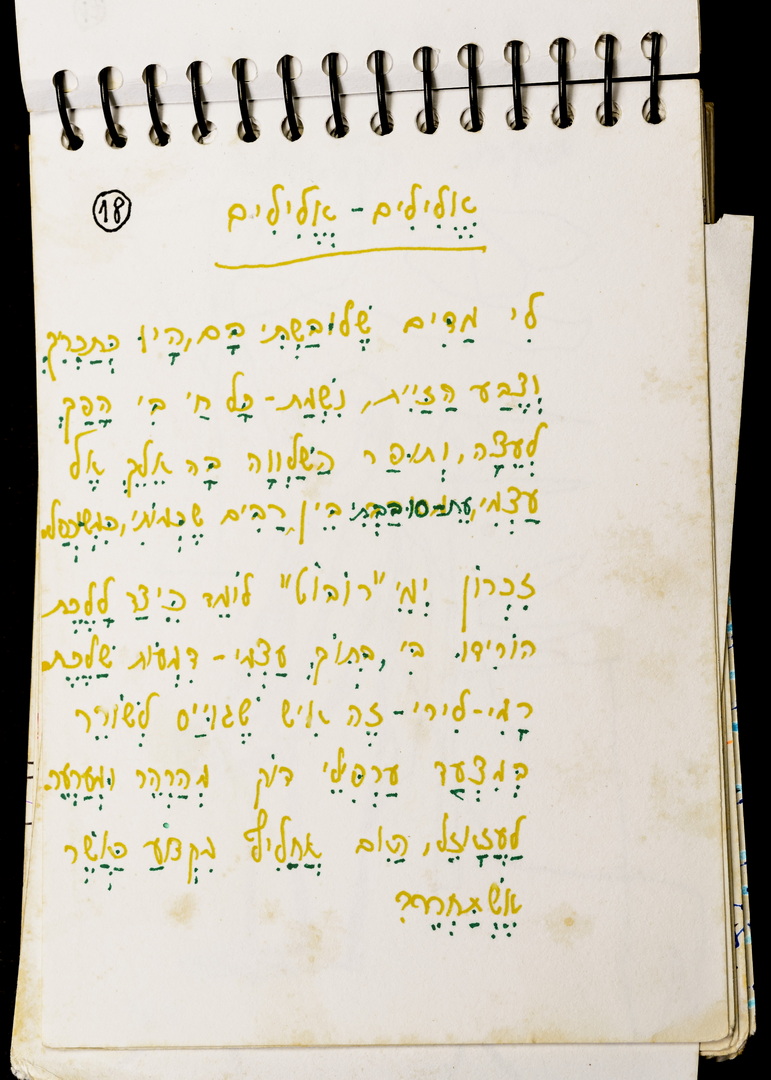 18
אֱלִילִים - אֱלִילִים
לִי מַדִּים שֶׁלּוֹבַשְׁתִּי בָּם, הָיוּ כְּתַכְרִיךְ
וְצֶבַע הַזַּיִת, נִשְׁמַת-כָּל חַי בִּי הֵפַךְ
לְעֵצָה, וְתוֹפֵר הַשַּׁלְוָוה בָּהּ אֵלֵךְ אֶל
עַצְמִי, סוֹבַבְתִּי בֵּין רַבִּים שֶׁכְּמוֹתִי,
זִכְרוֹן יְמֵי "רוֹבּוֹט" לוֹמֵד כֵּיצַד לָלֶכֶת
הוֹרִידוּ בִּי, בְּתוֹךְ עַצְמִי - דִּמְעוֹת שַׁלֶּכֶת.
רָמִי-לִירִי - זֶה אִישׁ שֶׁגּוֹיַיס לְשׁוֹרֵר
בְּמִצְעַד עַרְפִלֵּי דּוֹק מְהַרְהֵר וּמְעַרְעֵר.
לַעֲזָאזֵל, הַאִם אַחֲלִיף מִקְצוֹעַ כַּאֲשֶׁר
אֶשְׁתַּחְרֵר?